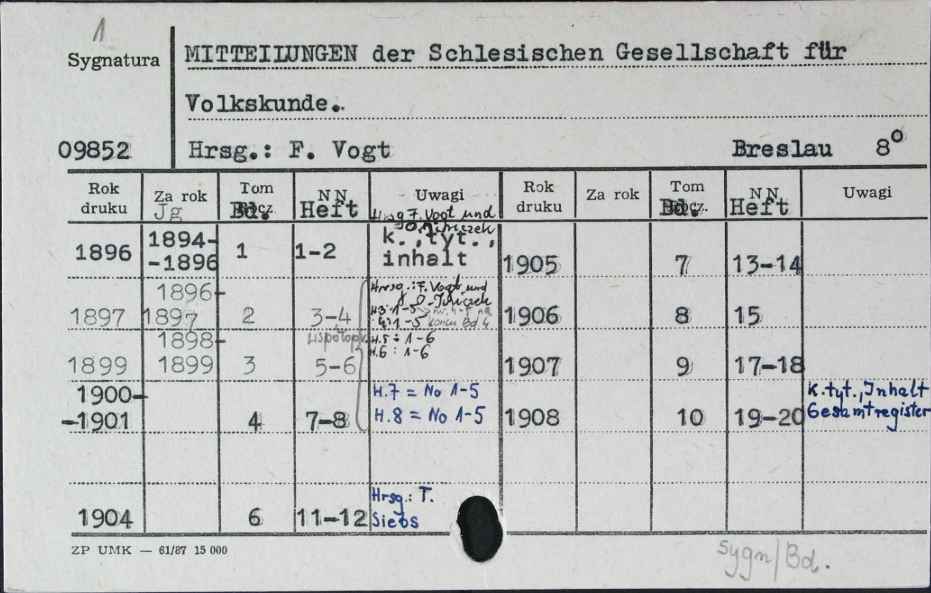 1
Sygnatura
MITTEILUNGEN der Schlesischen Gesellschaft für
Volkskunde.
09852 Hrsg.: F. Vogt Breslau 8°
Rok druku Za rok Jg Tom Bd. NN Heft Uwagi Rok druku Za rok Tom Bd. NN Heft Uwagi
Hrsg F. Vogt und
O. Jiriczek
1896 1894-
-1896 1 1-2 k.,tyt.,
inhalt 1905 7 13-14
1897 1896-
1897 2 3-4 Hrsg.: F. Vogt und
O. Jiriczek
H.3: 1-5
4: 1-5 Bd 4 1906 8 15
1899 1898-
1899 3 5-6 H.5: 1-6
H.6: 1-6 1907 9 17-18
1900-
-1901 4 7-8 H.7 = No 1-5
H.8 = No 1-5 1908 10 19-20 K.tyt., Inhalt
Gesamtregister
1904 6 11-12 Hrsg.: T.
Siebs
ZP UMK — 61/87 15 000
sygn/Bd.